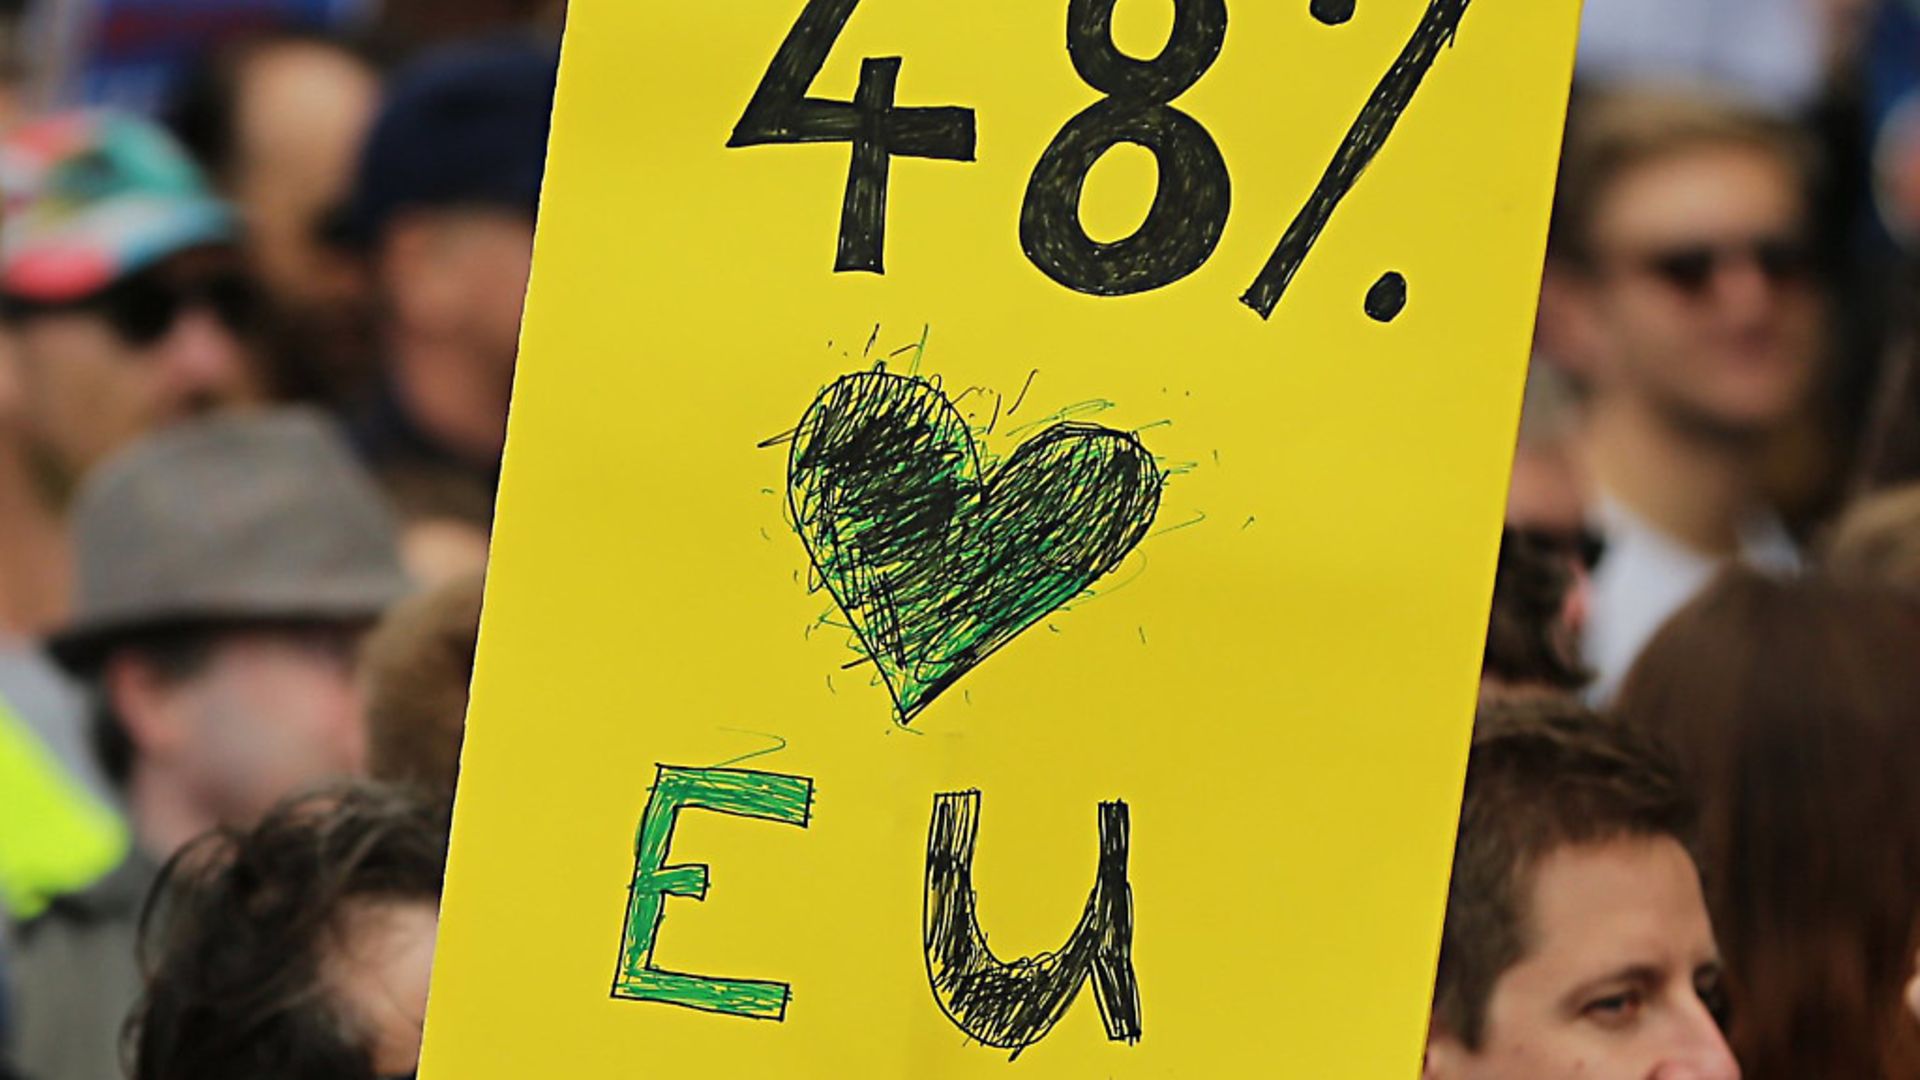 48%
Eu